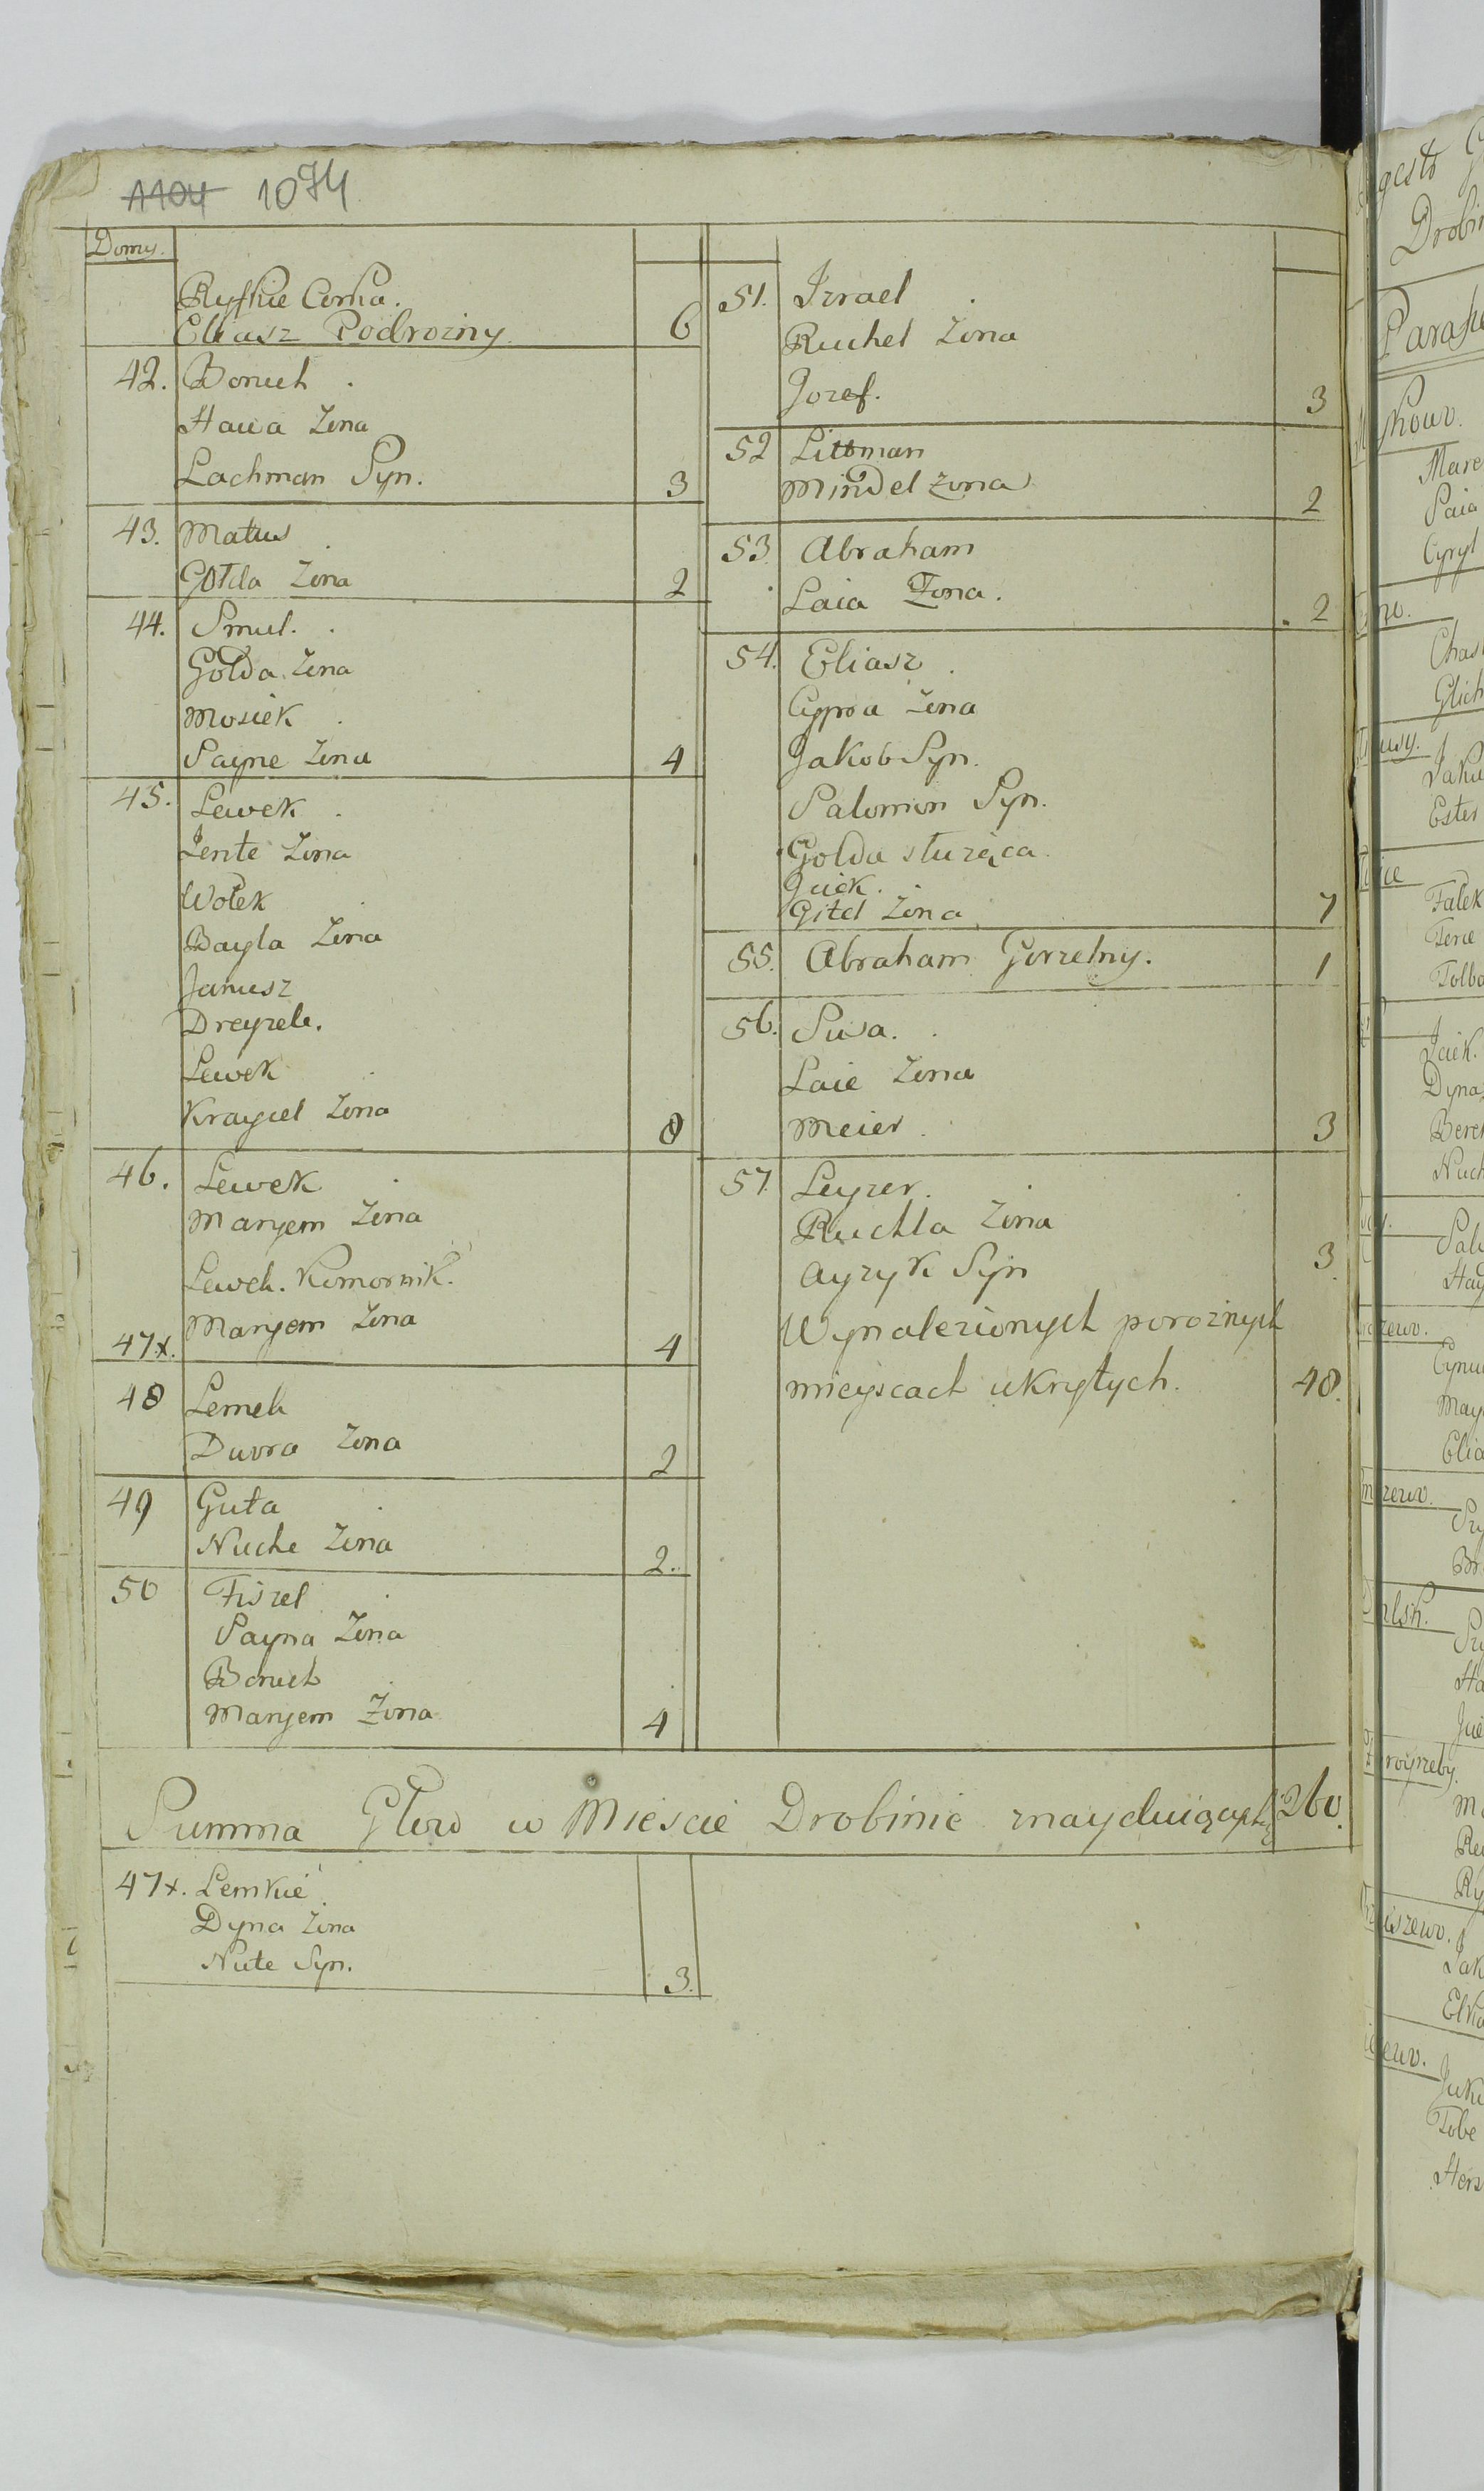 1104 1074
Domy.
Ryfkie Corka.
Eliasz Podrozny 6
42. Boruch
Hawa Zona
Lachman Syn. 3
43. Matus
Gołda Zona 2
44. Smul.
Golda Zona
Mosiek
Sayne Zona 4
45. Lewek
Jente Zona
Wolek
Bayla Zona
Janusz
Dreyzele.
Lewek
Kraycel Zona 8
46. Lewek
Maryem Zona
Lewek. Komornik.
47x. Maryem Zona 4
48 Lemek
Dwora Zona 2
49 Guta
Nuche Zona 2.
50 Fiszel
Sayna Zona
Boruch
Maryem Zona 4
51. Izrael
Ruchel Zona
Jozef. 3
52 Littman
Mindel Zona 2
53. Abraham
Laia Zona. 2
54. Eliasz
Cypra Zona
Jakob Syn.
Salomon Syn.
Golda służąca.
Jcick.
Gitel Zona 7
55. Abraham Gorzelny. 1
56. Susa.
Laie Zona
Meier 3
57. Leyzer.
Ruchla Zona
Ayzyk Syn 3.
Wynalezionych poroznych
mieyscach ukrytych. 48.
Summa Głow w Miescie Drobinie znayduiących 260.
47x. Lemkie
Dyna Zona
Nute Syn. 3.
Drobin
Mare
Saia
Cyryl
Ester
Falek
Jcick.
Dyna
Nuch
Tobe